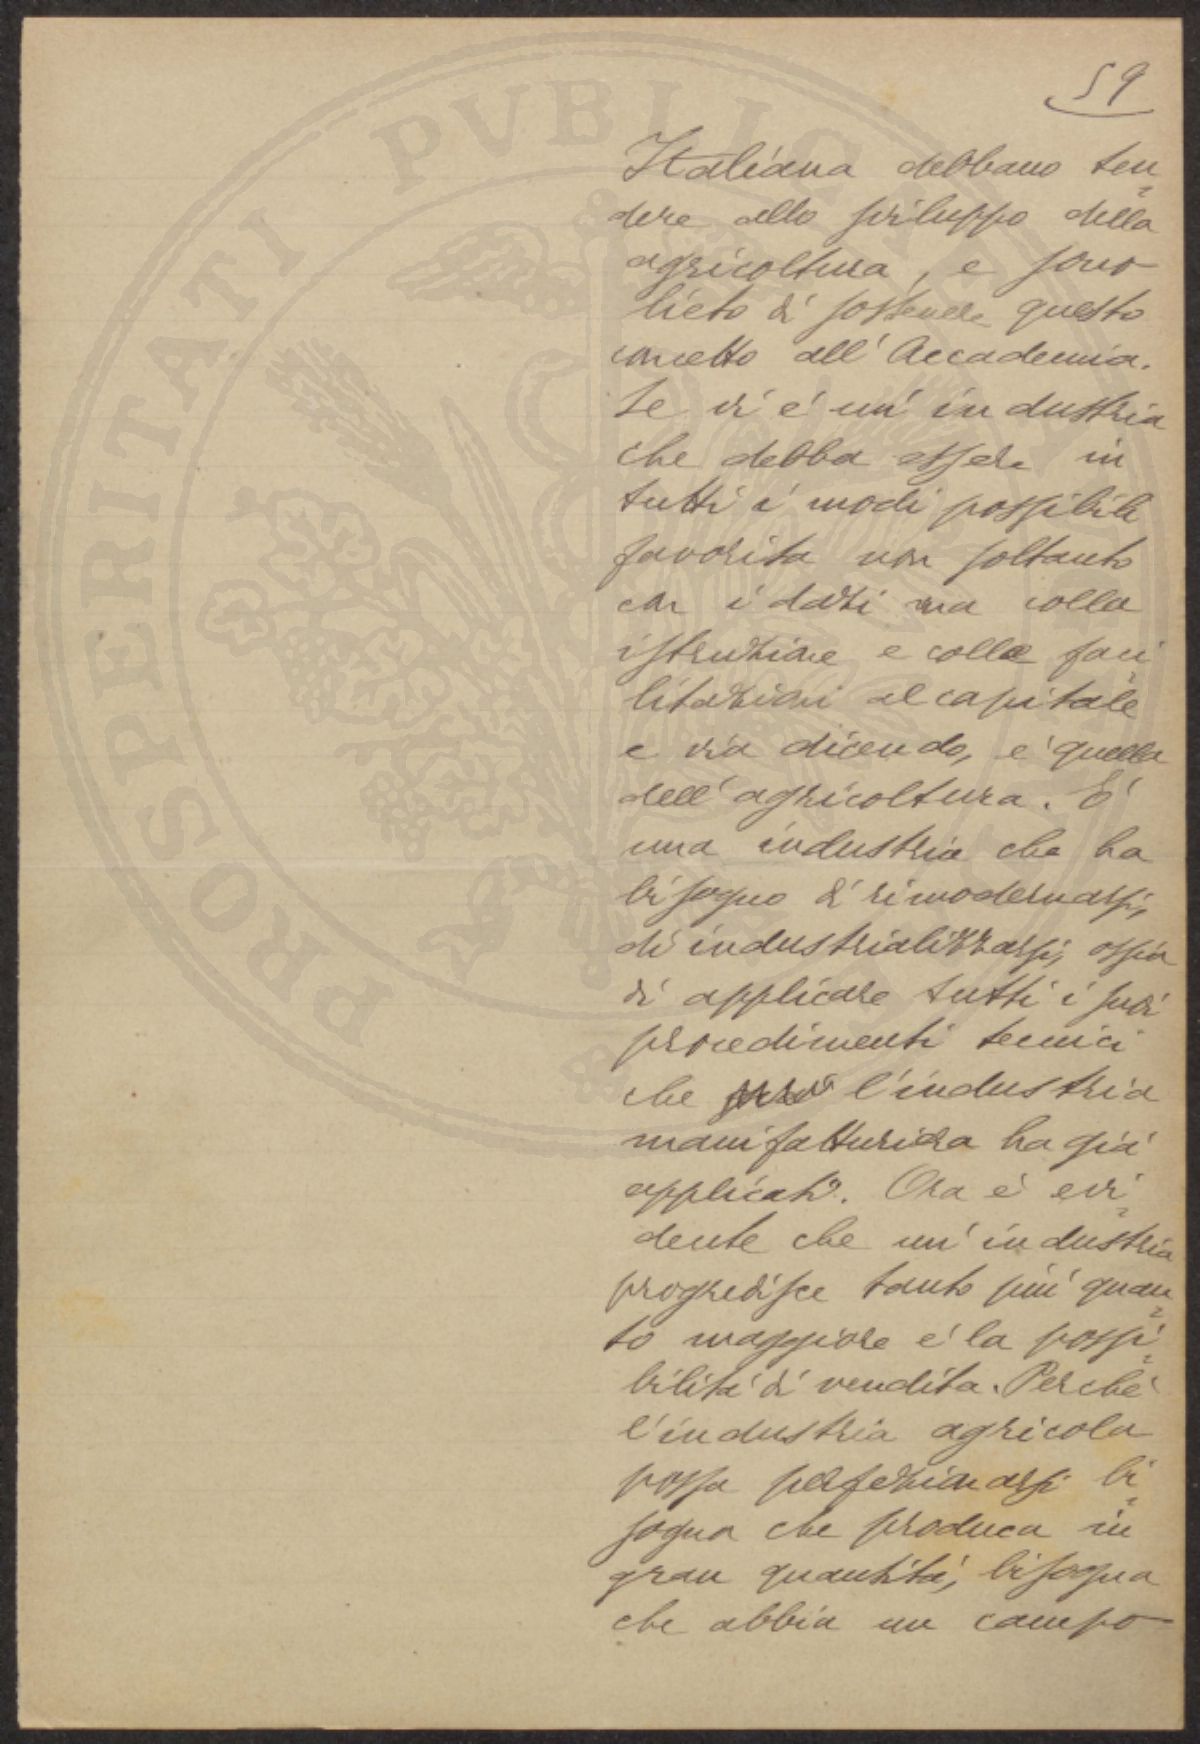 59
Italiana debbano ten
dere allo sviluppo della
agricoltura, e sono
lieto di sostenere questo
concetto all'Accademia.
Se vi è un'industria
che debba essere in
tutti i modi possibili
favorita non soltanto
con i dazi ma colla
istruzione e colle faci
litazioni al capitale
e via dicendo, è quella
dell'agricoltura. È
una industria che ha
bisogno di rimodernarsi,
di industrializzarsi, ossia
di applicare tutti i suoi
procedimenti tecnici
che l'industria
manifatturiera ha già
applicati. Ora è evi
dente che un'industria
progredisce tanto più quan
to maggiore è la possi
bilità di vendita. Perché
l'industria agricola
possa perfezionarsi bi
sogna che produca in
gran quantità, bisogna
che abbia un campo
PROSPERITATI PVBLICAE